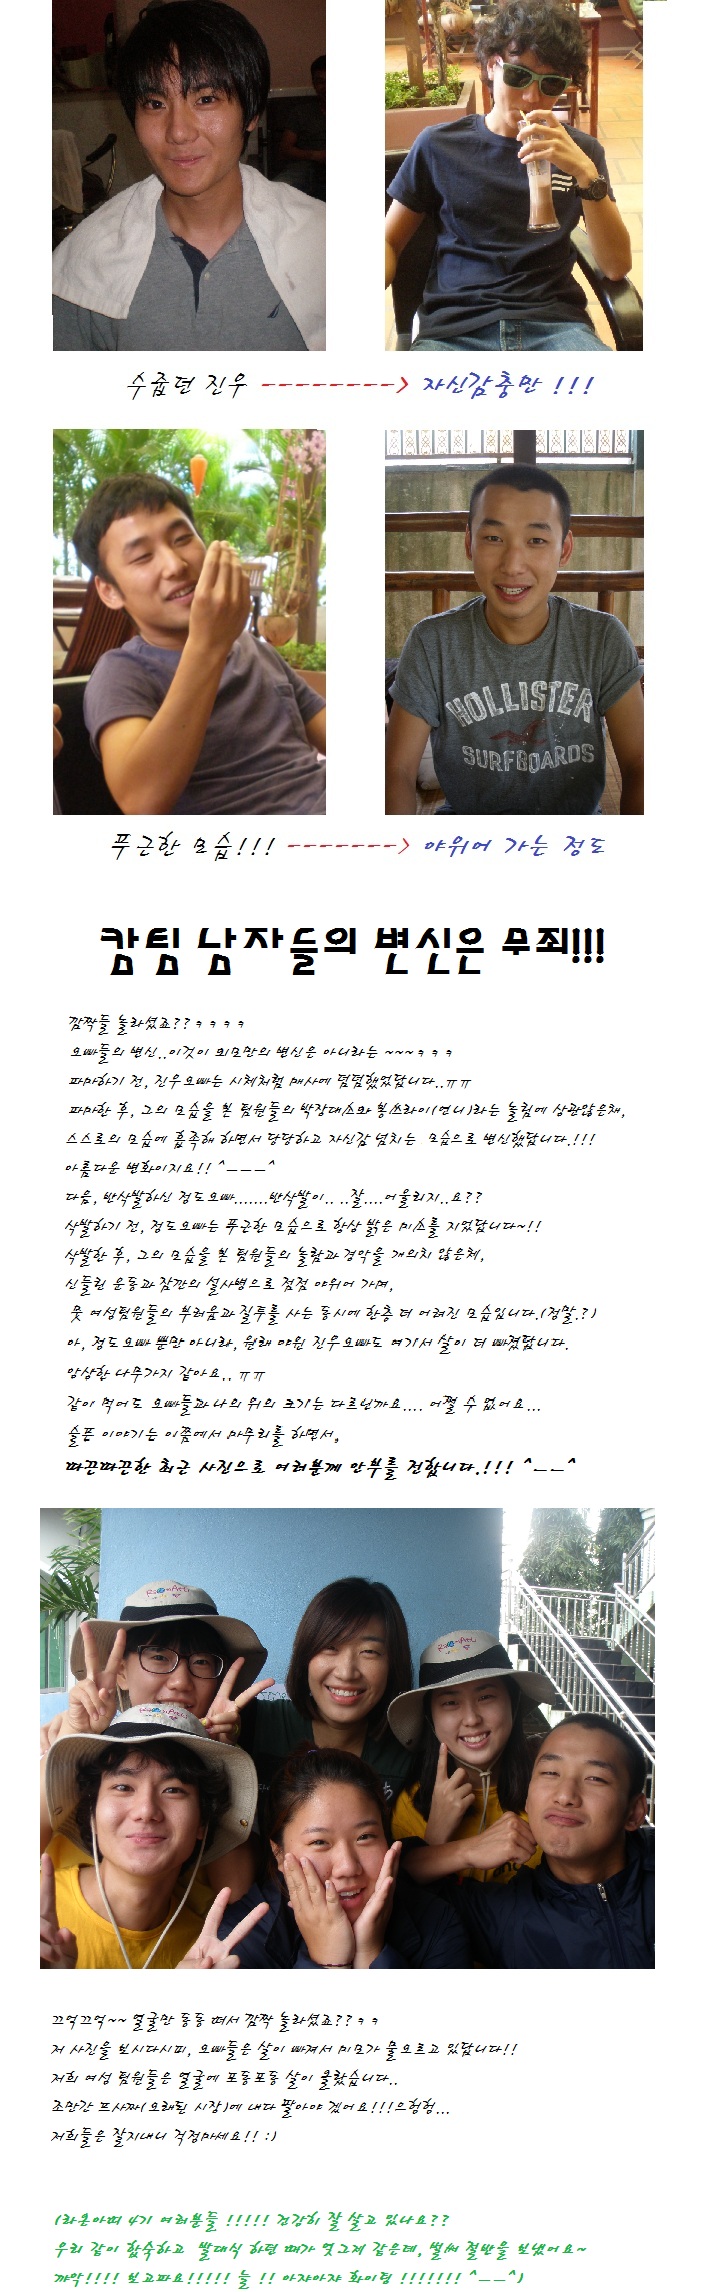 수줍던 진우 --------> 자신감충만 !!!
HOLLISTER
SURFBOARDS
푸근한 모습!!! -------> 야위어 가는 정도
캄팀 남자들의 변신은 무죄!!!
깜짝들 놀라셨죠?? ㅋ ㅋ ㅋ ㅋ
오빠들의 변신..이것이 외모만의 변신은 아니라는 ~~~ㅋ ㅋ ㅋ
파마하기 전, 진우오빠는 시체처럼 매사에 덤덤했었답니다..ㅠㅠ
파마한 후, 그의 모습을 본 팀원들의 박장대소와 봉쓰라이(언니)라는 놀림에 상관않은채,
스스로의 모습에 흡족해 하면서 당당하고 자신감 넘치는 모습으로 변신했답니다.!!!
아름다운 변화이지요!! ^---^
다음, 반삭발하신 정도오빠.......반삭발이.. ..잘....어울리지..요??
삭발하기 전, 정도오빠는 푸근한 모습으로 항상 밝은 미소를 지었답니다~!!
삭발한 후, 그의 모습을 본 팀원들의 놀람과 경악을 개의치 않은채,
신들린 운동과 잠깐의 설사병으로 점점 야위어 가며,
뭇 여성팀원들의 부러움과 질투를 사는 동시에 한층 더 어려진 모습입니다.(정말.?)
아, 정도오빠 뿐만 아니라, 원래 야윈 진우오빠도 여기서 살이 더 빠졌답니다.
앙상한 나무가지 같아요.. ㅠㅠ
같이 먹어도 오빠들과 나의 위의 크기는 다르닌까요.... 어쩔 수 없어요...
슬픈 이야기는 이쯤에서 마무리를 하면서,
따끈따끈한 최근 사진으로 여러분께 안부를 전합니다.!!! ^--^
끄억끄억~~ 얼굴만 동동 떠서 깜짝 놀라셨죠?? ㅋ ㅋ
저 사진을 보시다시피, 오빠들은 살이 빠져서 미모가 물오르고 있답니다!!
저희 여성 팀원들은 얼굴에 포동포동 살이 올랐습니다..
조만간 프사짜(오래된 시장)에 내다 팔아야 겠어요!!!으헝헝...
저희들은 잘지내니 걱정마세요!! :)
(라온아띠 4기 여러분들 !!!!! 건강히 잘 살고 있나요??
우리 같이 합숙하고 발대식 하던 때가 엇그제 같은데, 벌써 절반을 보냈어요~
꺄악!!!! 보고파요!!!!! 늘 !! 아쟈아쟈 화이팅 !!!!!!! ^--^)